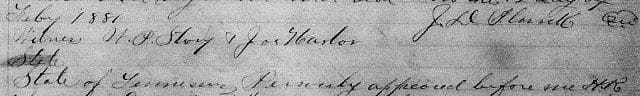 Feby 1881 J. D.
Witness W. P. Story & Joe Harlor
State
State of Tennessee Personly appeared before me H.K